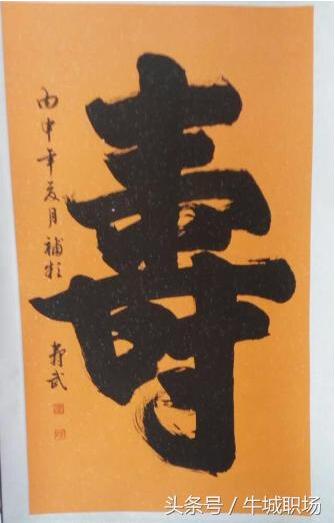 壽
丙申年夏月補
武
头条号 / 牛城职场